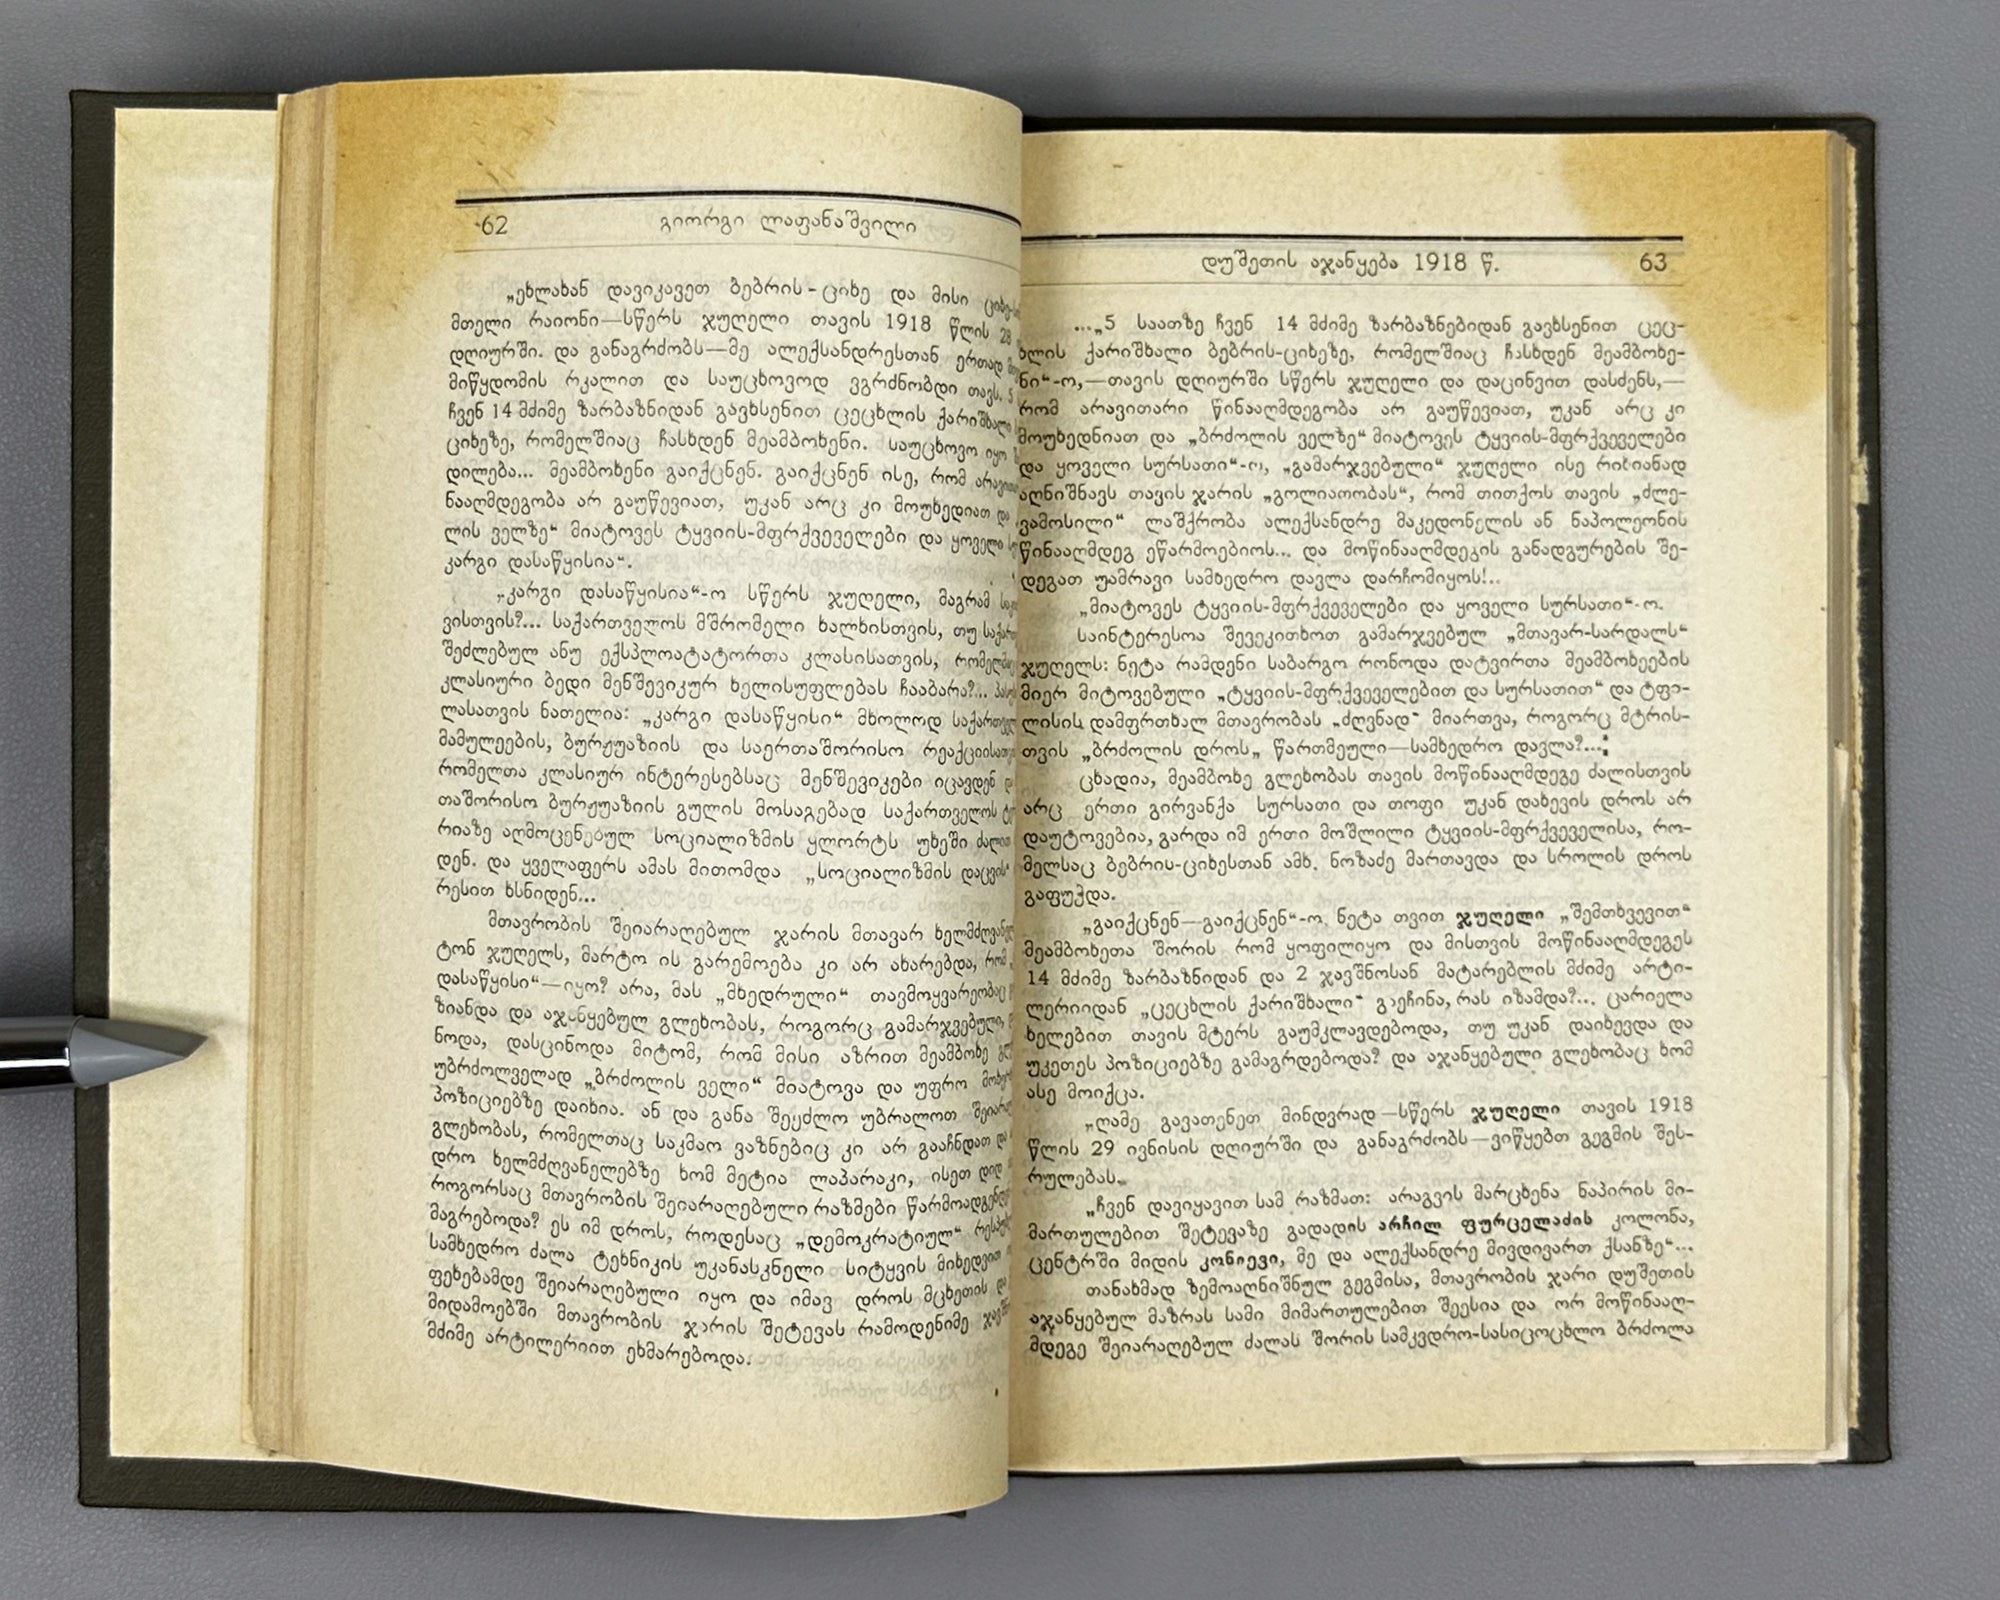 62 გიორგი ლაფანაშვილი
„ეხლახან დავიკავეთ ბებრის-ციხე და მისი
მთელი რაიონი—სწერს ჯუღელი თავის 1918 წლის 28
დღიურში. და განაგრძობს—მე ალექსანდრესთან ერთად
მიწყდომის რკალით და საუცხოვოდ ვგრძნობდი თავს. 5
ჩვენ 14 მძიმე ზარბაზნიდან გავხსენით ცეცხლის ქარიშხალი
ციხეზე, რომელშიაც ჩასხდენ მეამბოხენი. საუცხოვო იყო
დილება... მეამბოხენი გაიქცნენ. გაიქცნენ ისე, რომ
ნააღმდეგობა არ გაუწევიათ, უკან არც კი მოუხედიათ და
ლის ველზე“ მიატოვეს ტყვიის-მფრქვეველები და ყოველი
კარგი დასაწყისია“.
„კარგი დასაწყისია“-ო სწერს ჯუღელი, მაგრამ
ვისთვის?... საქართველოს მშრომელი ხალხისთვის, თუ
შეძლებულ ანუ ექსპლოატატორთა კლასისათვის,
კლასიური ბედი მენშევიკურ ხელისუფლებას ჩააბარა?...
ლასათვის ნათელია: „კარგი დასაწყისი“ მხოლოდ
მამულეების, ბურჟუაზიის და საერთაშორისო
რომელთა კლასიურ ინტერესებსაც მენშევიკები იცავდენ
თაშორისო ბურჟუაზიის გულის მოსაგებად საქართველოს
რიაზე აღმოცენებულ სოციალიზმის ყლორტს უხეში ძალით
დენ. და ყველაფერს ამას მითომდა „სოციალიზმის დაცვის“
რესით ხსნიდენ...
მთავრობის შეიარაღებულ ჯარის მთავარ
ტონ ჯუღელს, მარტო ის გარემოება კი არ ახარებდა, რომ
დასაწყისი“—იყო? არა, მას „მხედრული“ თავმოყვარეობაც
ზიანდა და აჯანყებულ გლეხობას, როგორც გამარჯვებული,
ნოდა, დასცინოდა მიტომ, რომ მისი აზრით მეამბოხე
უბრძოლველად „ბრძოლის ველი“ მიატოვა და უფრო
პოზიციებზე დაიხია. ან და განა შეეძლო უბრალოთ
გლეხობას, რომელთაც საკმაო ვაზნებიც კი არ გააჩნდათ და
დრო ხელმძღვანელებზე ხომ მეტია ლაპარაკი, ისეთ დიდ
როგორსაც მთავრობის შეიარაღებული რაზმები
მაგრებოდა? ეს იმ დროს, როდესაც „დემოკრატიულ“
სამხედრო ძალა ტეხნიკის უკანასკნელი სიტყვის მიხედვით
ფეხებამდე შეიარაღებული იყო და იმავ დროს მცხეთის და
მიდამოებში მთავრობის ჯარის შეტევას რამოდენიმე
მძიმე არტილერიით ეხმარებოდა.
დუშეთის აჯანყება 1918 წ. 63
...„5 საათზე ჩვენ 14 მძიმე ზარბაზნებიდან გავხსენით ცეც-
ხლის ქარიშხალი ბებრის-ციხეზე, რომელშიაც ჩასხდენ მეამბოხე-
ნი“-ო,—თავის დღიურში სწერს ჯუღელი და დაცინვით დასძენს,—
რომ არავითარი წინააღმდეგობა არ გაუწევიათ, უკან არც კი
მოუხედნიათ და „ბრძოლის ველზე“ მიატოვეს ტყვიის-მფრქვეველები
და ყოველი სურსათი“-ო, „გამარჯვებული“ ჯუღელი ისე რიხიანად
აღნიშნავს თავის ჯარის „გოლიაოობას“, რომ თითქოს თავის „ძლე-
ვამოსილი“ ლაშქრობა ალექსანდრე მაკედონელის ან ნაპოლეონის
წინააღმდეგ ეწარმოებიოს... და მოწინააღმდეგის განადგურების შე-
დეგათ უამრავი სამხედრო დავლა დარჩომიყოს!..
„მიატოვეს ტყვიის-მფრქვეველები და ყოველი სურსათი“-ო.
საინტერესოა შევეკითხოთ გამარჯვებულ „მთავარ-სარდალს“
ჯუღელს: ნეტა რამდენი საბარგო რონოდა დატვირთა მეამბოხეების
მიერ მიტოვებული „ტყვიის-მფრქვეველებით და სურსათით“ და ტფი-
ლისის დამფრთხალ მთავრობას „ძღვნად“ მიართვა, როგორც მტრის-
თვის „ბრძოლის დროს„ წართმეული—სამხედრო დავლა?...
ცხადია, მეამბოხე გლეხობას თავის მოწინააღმდეგე ძალისთვის
არც ერთი გირვანქა სურსათი და თოფი უკან დახევის დროს არ
დაუტოვებია, გარდა იმ ერთი მოშლილი ტყვიის-მფრქვეველისა, რო-
მელსაც ბებრის-ციხესთან ამხ. ნოზაძე მართავდა და სროლის დროს
გაფუჭდა.
„გაიქცნენ—გაიქცნენ“-ო. ნეტა თვით ჯუღელი „შემთხვევით“
მეამბოხეთა შორის რომ ყოფილიყო და მისთვის მოწინააღმდეგეს
14 მძიმე ზარბაზნიდან და 2 ჯავშნოსან მატარებლის მძიმე არტი-
ლერიიდან „ცეცხლის ქარიშხალი“ გაეჩინა, რას იზამდა?... ცარიელა
ხელებით თავის მტერს გაუმკლავდებოდა, თუ უკან დაიხევდა და
უკეთეს პოზიციებზე გამაგრდებოდა? და აჯანყებული გლეხობაც ხომ
ასე მოიქცა.
„ღამე გავათენეთ მინდვრად—სწერს ჯუღელი თავის 1918
წლის 29 ივნისის დღიურში და განაგრძობს—ვიწყებთ გეგმის შეს-
რულებას.
„ჩვენ დავიყავით სამ რაზმათ: არაგვის მარცხენა ნაპირის მი-
მართულებით შეტევაზე გადადის არჩილ ფურცელაძის კოლონა,
ცენტრში მიდის კონიევი, მე და ალექსანდრე მივდივართ ქსანზე“...
თანახმად ზემოაღნიშნულ გეგმისა, მთავრობის ჯარი დუშეთის
აჯანყებულ მაზრას სამი მიმართულებით შეესია და ორ მოწინააღ-
მდეგე შეიარაღებულ ძალას შორის სამკვდრო-სასიცოცხლო ბრძოლა